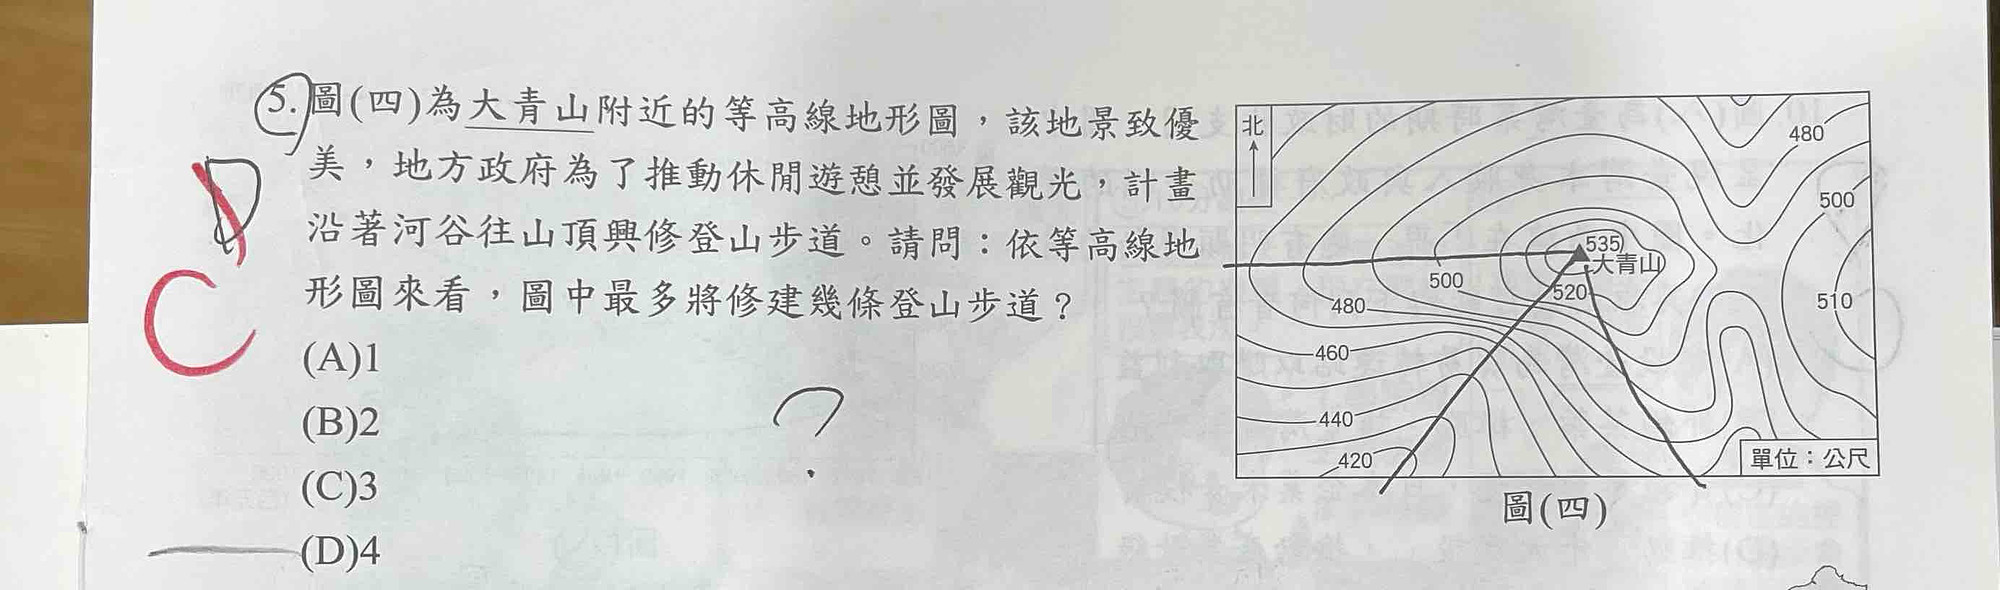 5.圖(四)為大青山附近的等高線地形圖，該地景致優
美，地方政府為了推動休閒遊憩並發展觀光，計畫
沿著河谷往山頂興修登山步道。請問：依等高線地
形圖來看，圖中最多將修建幾條登山步道？
(A)1
(B)2
(C)3
(D)4
D
C
?
北
480
500
535
大青山
500
520
510
480
460
440
420
單位：公尺
圖(四)